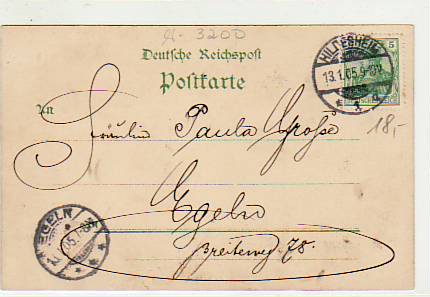 A-3200
Deutsche Reichspost
Postkarte
HILDESHEIM
13.1.05.9-10V.
* 1 d
5
An
Fräulein Paula Grosse
18,-
Egeln
EGELN
Breiteweg 78.